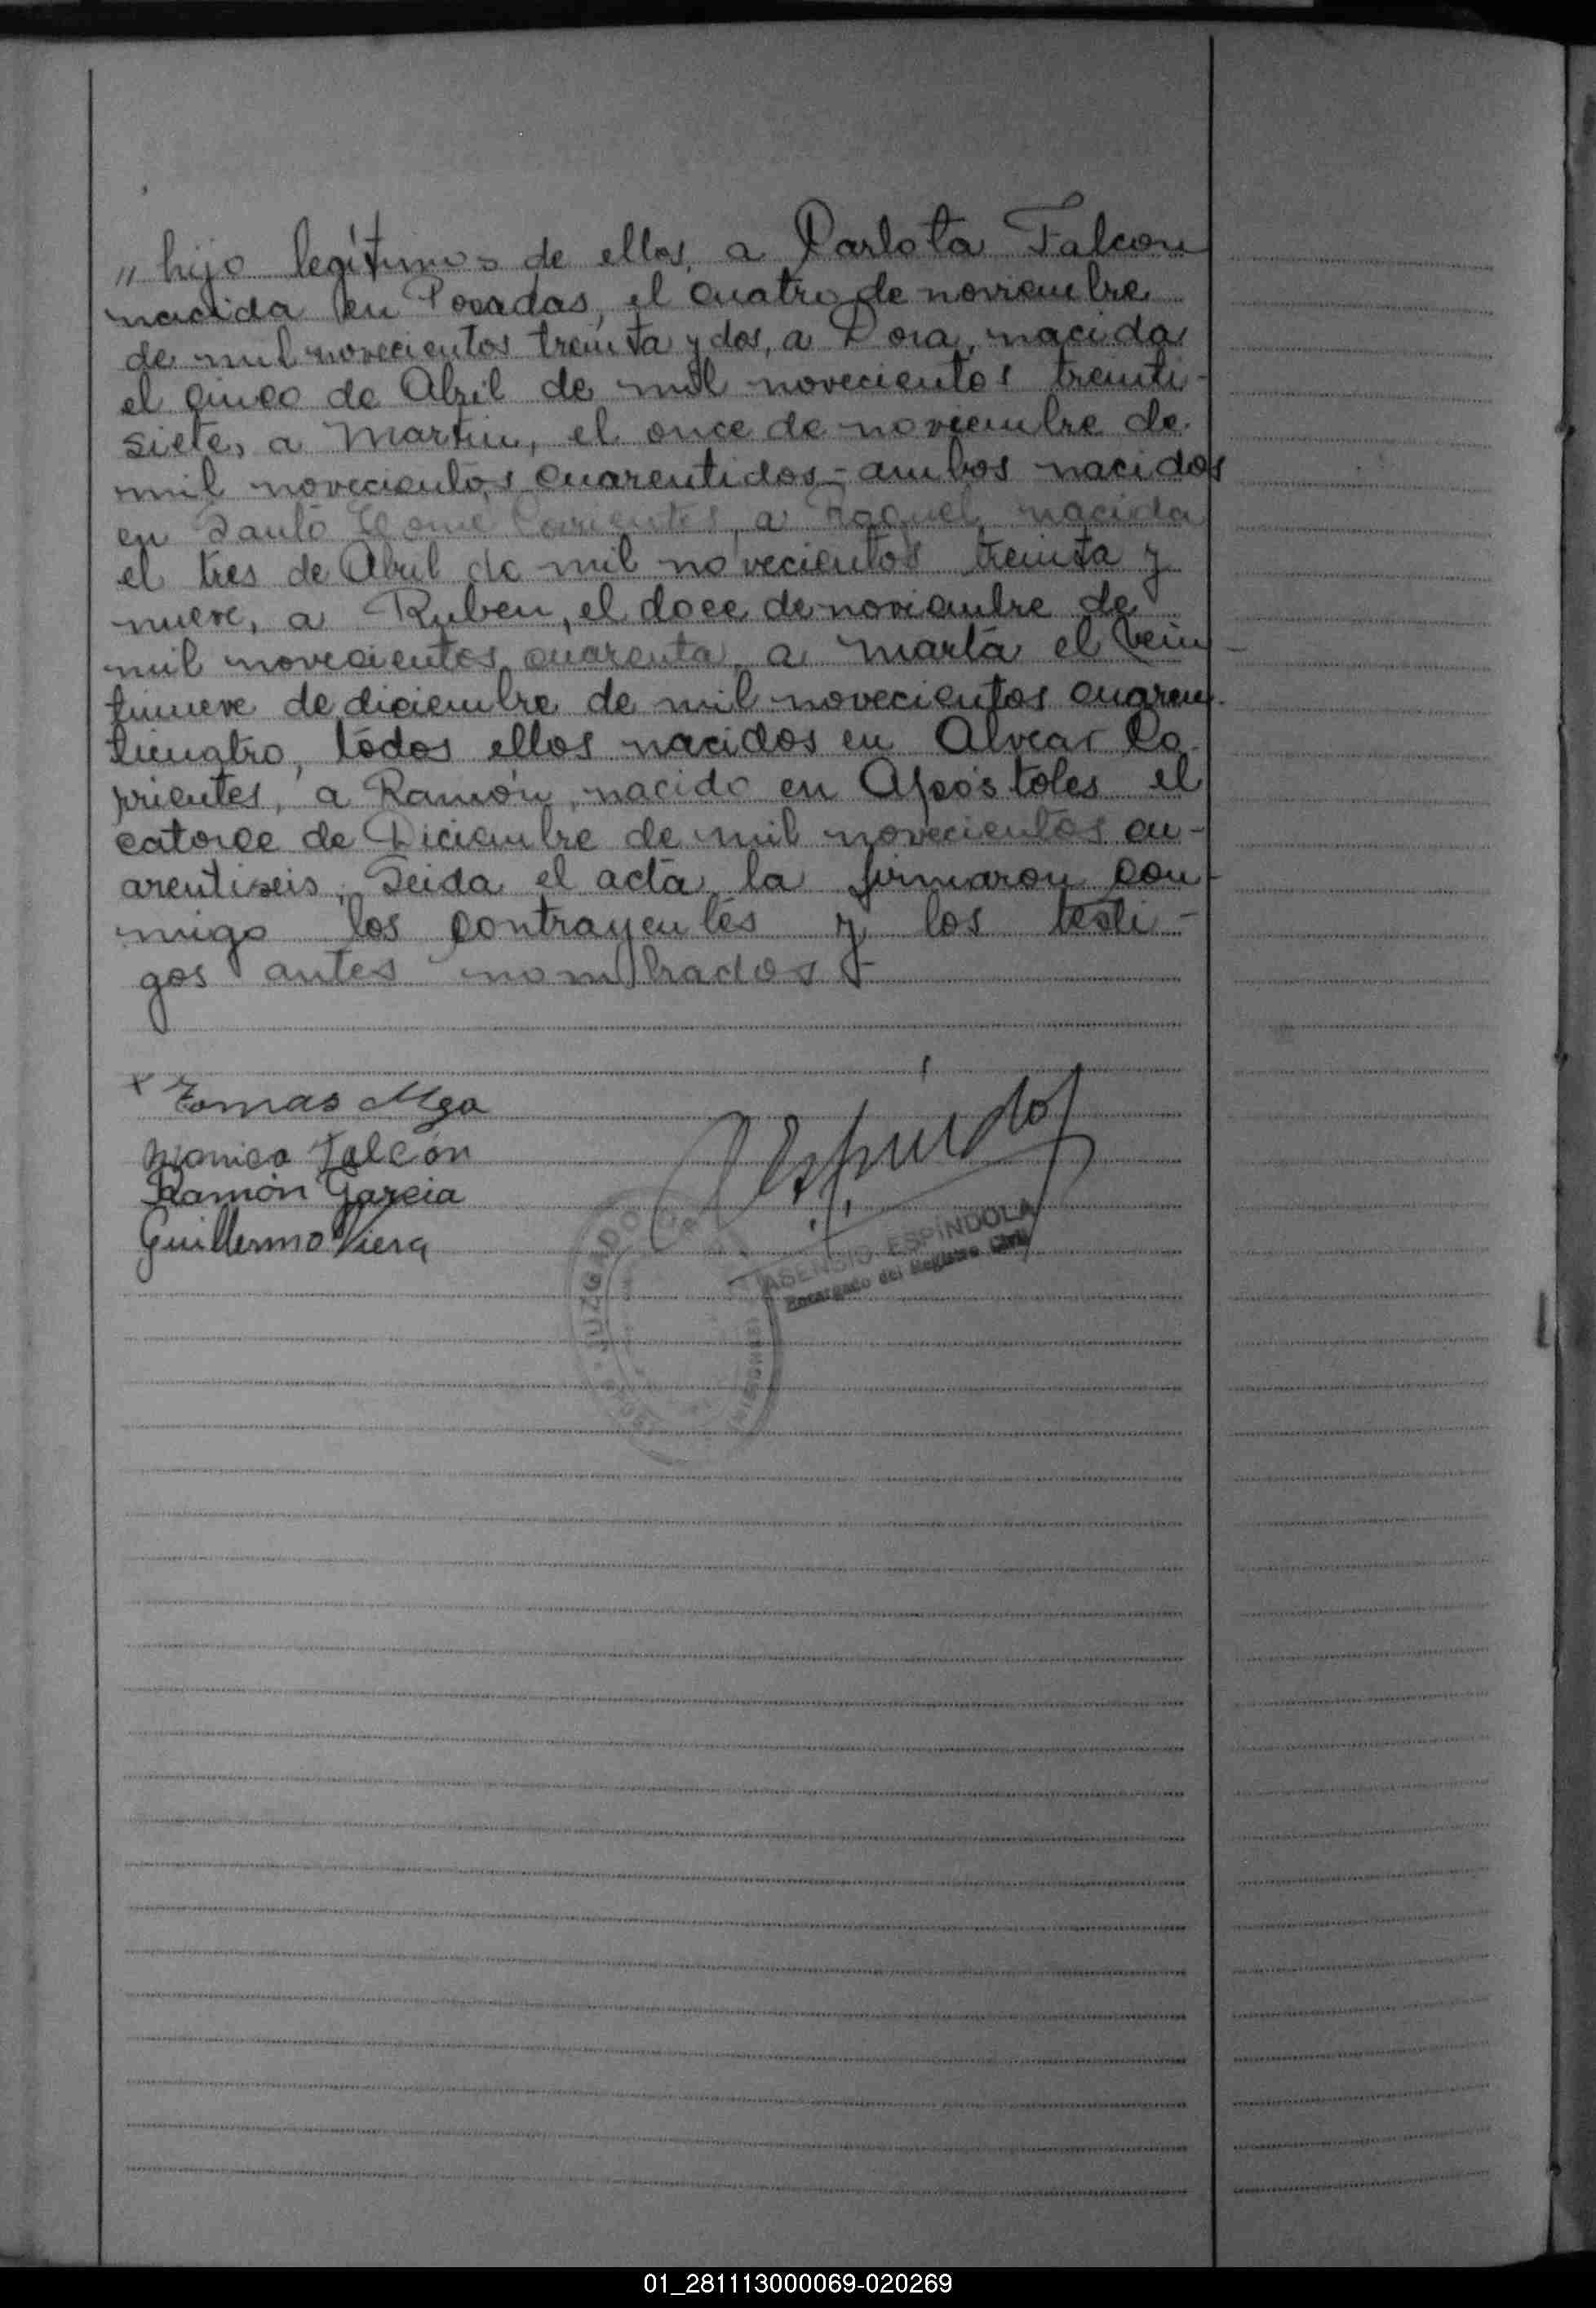 " hijo legítimos de ellos, a Carlota Falcon
nacida en Posadas, el cuatro de noviembre
de mil novecientos treinta y dos, a Dora, nacida
el cinco de Abril de mil novecientos treinti-
siete, a Martin, el once de noviembre de
mil novecientos cuarentidos - ambos nacidos
en Santo Tomé Corrientes, a Raquel, nacida
el tres de Abril de mil novecientos treinta y
nueve, a Ruben, el doce de noviembre de
mil novecientos cuarenta, a Marta el vein-
tinueve de diciembre de mil novecientos cuaren-
ticuatro, todos ellos nacidos en Alvear Co-
rrientes, a Ramón, nacido en Apóstoles el
catorce de Diciembre de mil novecientos cu-
arentiseis. Leida el acta la firmaron con-
migo los contrayentes y los testi-
gos antes nombrados -
x Tomas
Falcón
Ramón Garcia
Guillermo Viera
Espíndola
JUZGADO
ASENSIO ESPÍNDOLA
Encargado del Registro Civil
MISIONES
01_281113000069-020269